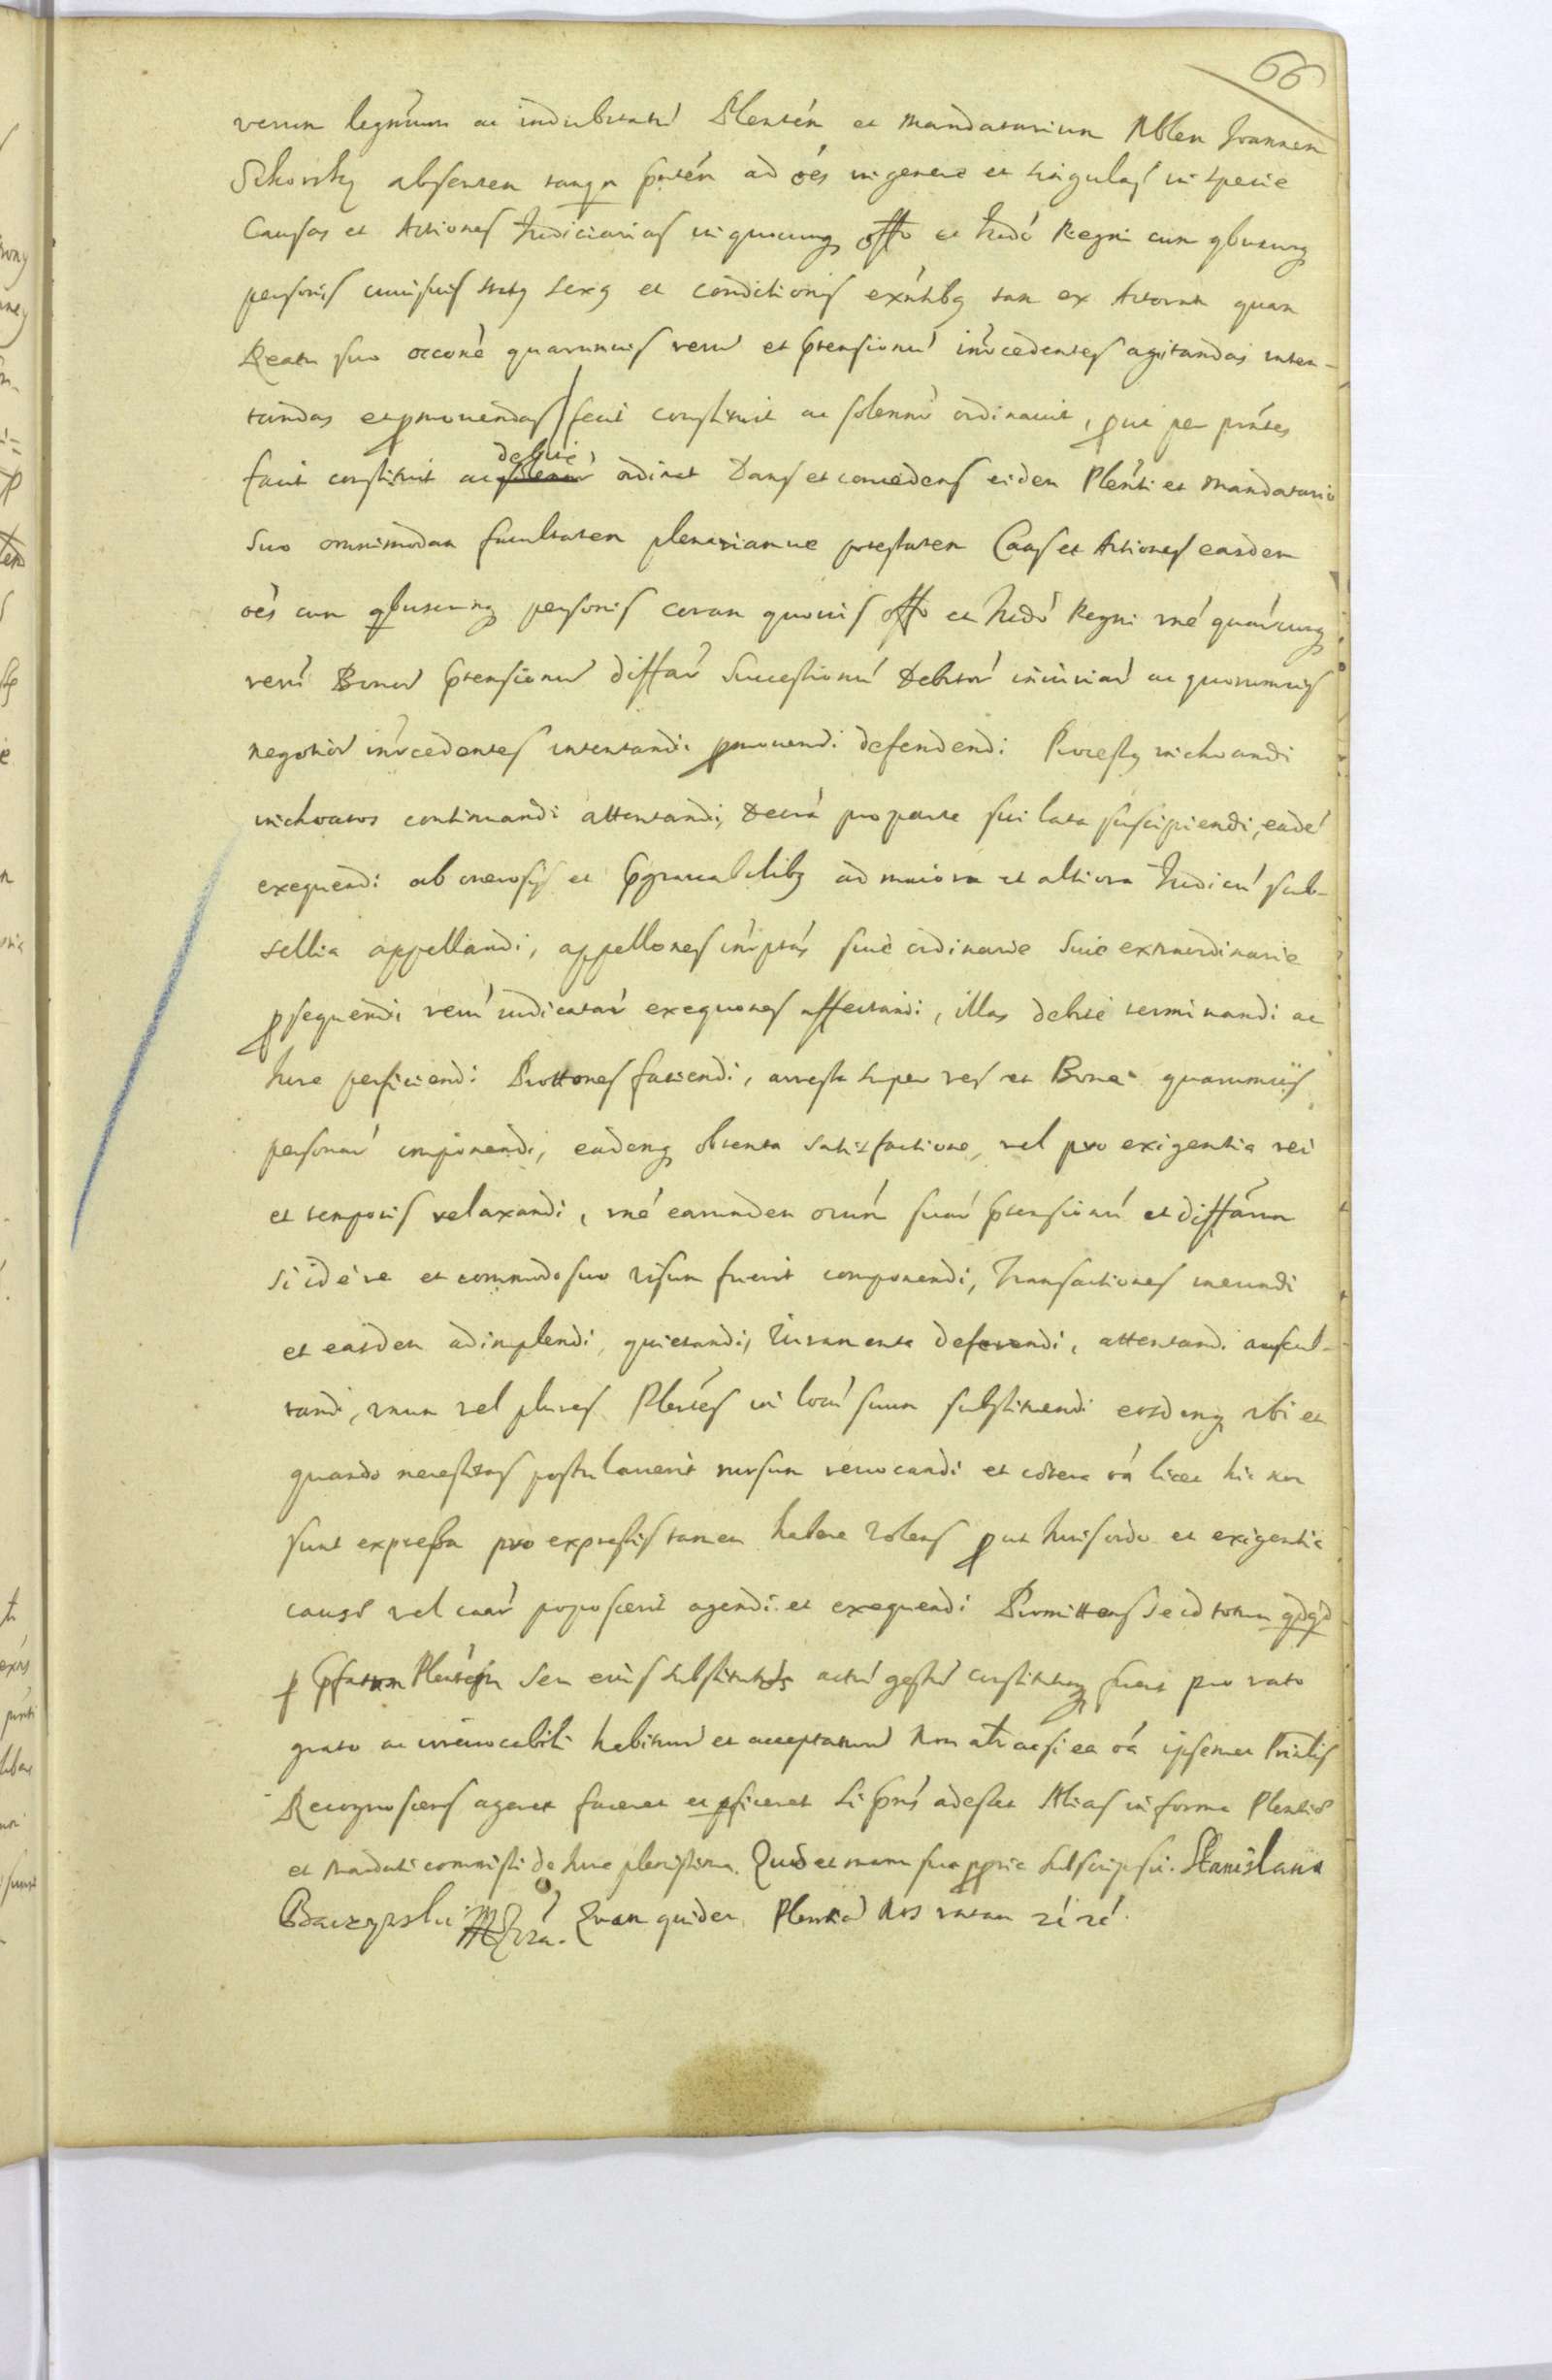 66
verum legnmum ac indubitatu Plentén et mandatarium Nblem Joannem
Sikorsky absentem tanqm pntém ad oés in genere et singulas in specie
Causas et Actiones Judiciarias in quocunq offo et Judó Regni cum qbuscunq
personis cuiusuis stats sexq et conditionis exntibq tam ex Actoratu quam
Reatu suo occone quarumuis reru et ptensionu introcedentes agitandas inten-
tandas et pmouendas fecit constituit ac solennr ordinauit, put per pntes
facit constituit ac debite ordinat Dans et concedens eidem Plenti et mandatario
suo omnimodam facultatem plenariamue potestatem Caas et Actiones easdem
oés cum qbuscunq personis coram quouis offo et Judó Regni rné quarcunq
reru Bonor ptensionu diffar Successionu Debitor iniuriar ac quorumuis
negotior introcedentes intentandi pmouendi defendendi Processq inchoandi
inchoatos continuandi attentandi, Decrá pro parte sui lata suscipiendi, eadé
exequendi ab onerosis et pgrauabilibq ad maiora et altiora Judicii sub-
sellia appellandi, appellones intptas siue ordinarie siue extraordinarie
psequendi reru iudicatar exequones affectandi, illas debite terminandi ac
Jure perficiendi Prottones faciendi, arresta super res et Bona quarumuis
personar imponendi, eademq obtenta satisfactione, vel pro exigentia rei
et temporis relaxandi, rné earumdem oium suar ptensionu et diffarum
si id e re et commodo suo visum fuerit componendi, Transactiones ineundi
et easdem adimplendi, quietandi, Juramenta deferendi, attentandi auscul-
tandi, unum vel plures Plentes in locu suum substituendi eosdemq ubi et
quando necessitas postulauerit rursum reuocandi et cötera oá licet hic non
sunt expressa pro expressis tamen habere volens put Juris ordo et exigentia
causö vel caar poposcerit agendi et exequendi Promittens se id totum qdqd
p pfatum Plentem seu eius substitutos actu gestu constitutuq fuerit pro rato
grato ac irreuocabili habitur et acceptatur non altr ac si ea oá ipsemet Prinlis
Recognoscens ageret faceret et pficeret si pns adesset Alias in forma Plentiö
et mandati commissi de Jure plenissima. Quod et manu sua ppria subscripsit. Stanislaus
Baczynski mpra. Quam quidem Plentia Nos ratam ré ré.